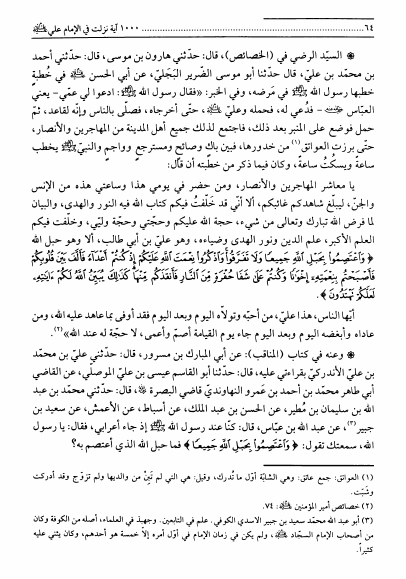 ٦٤ ........ ١٠٠٠ آية نزلت في الإمام علي ﵇
❁ السيّد الرضي في (الخصائص)، قال: حدّثني هارون بن موسى، قال: حدّثني أحمد
بن محمد بن علي، قال حدّثنا أبو موسى الضّرير البَجَليّ، عن أبي الحسن ﵇ في خُطبةٍ
خطبها رسول الله ﷺ في مَرضه، وفي الخبر: «فقال رسول الله ﷺ: ادعوا لي عمّي- يعني
العبّاس - فدعي له، فحمله وعليّ ﵇، حتّى أخرجاه، فصلّى بالناس وإنّه لقاعد، ثمّ
حمل فوضع على المنبر بعد ذلك، فاجتمع لذلك جميع أهل المدينة من المهاجرين والأنصار،
حتّى برزت العواتق(١) من خدورها، فبين باكٍ وصائحٍ ومسترجعٍ وواجمٍ والنبيّ ﷺ يخطب
ساعةً ويسكُتُ ساعةً، وكان فيما ذكر من خطبته أن قال:
يا معاشر المهاجرين والأنصار، ومن حضر في يومي هذا وساعتي هذه من الإنس
والجنّ، ليبلّغ شاهدكم غائبكم، ألا أنّي قد خلّفتُ فيكم كتاب الله فيه النور والهدى، والبيان
لما فرض الله تبارك وتعالى من شيء، حجة الله عليكم وحجتي وحجّة وليّي، وخلّفت فيكم
العلم الأكبر، علم الدين ونور الهدى وضياءه، وهو علي بن أبي طالب، ألا وهو حبل الله
﴿ وَاعْتَصِمُوا بِحَبْلِ اللَّهِ جَمِيعًا وَلَا تَفَرَّقُوا وَاذْكُرُوا نِعْمَتَ اللَّهِ عَلَيْكُمْ إِذْ كُنْتُمْ أَعْدَاءً فَأَلَّفَ بَيْنَ قُلُوبِكُمْ
فَأَصْبَحْتُمْ بِنِعْمَتِهِ إِخْوَانًا وَكُنْتُمْ عَلَى شَفَا حُفْرَةٍ مِنَ النَّارِ فَأَنْقَذَكُمْ مِنْهَا كَذَلِكَ يُبَيِّنُ اللَّهُ لَكُمْ آيَاتِهِ
لَعَلَّكُمْ تَهْتَدُونَ ﴾.
أيّها الناس، هذا عليّ، من أحبّه وتولّاه اليوم وبعد اليوم فقد أوفى بما عاهد عليه الله، ومن
عاداه وأبغضه اليوم وبعد اليوم جاء يوم القيامة أصمّ وأعمى، لا حجّة له عند الله»(٢).
❁ وعنه في كتاب (المناقب): عن أبي المبارك بن مسرور، قال: حدّثني عليّ بن محمّد
بن عليّ الأندركيّ بقراءتي عليه، قال: حدّثنا أبو القاسم عيسى بن عليّ الموصلي، عن القاضي
أبي طاهر محمّد بن أحمد بن عَمرو النهاوندي قاضي البصرة، قال: حدّثني محمّد بن عبد
الله بن سليمان بن مُطير، عن الحسن بن عبد الملك، عن أسباط، عن الأعمش، عن سعيد بن
جبير(٣)، عن عبد الله بن عبّاس، قال: كنّا عند رسول الله ﷺ إذ جاء أعرابي، فقال: يا رسول
الله، سمعتك تقول: ﴿ وَاعْتَصِمُوا بِحَبْلِ اللَّهِ جَمِيعًا ﴾ فما حبل الله الذي أعتصم به؟
(١) العواتق: جمع عاتق: وهي الشابّة أوّل ما تُدرك، وقيل: هي التي لم تَبِنْ من والديها ولم تزوّج وقد أدركت
وشبّت.
(٢) خصائص أمير المؤمنين ﵇: ٧٤.
(٣) أبو عبد الله محمّد سعيد بن جبير الاسدي الكوفي. علم في التابعين. وجهبذ في العلماء، أصله من الكوفة وكان
من أصحاب الإمام السجّاد ﵇، ولم يكن في زمان الإمام في أوّل أمره إلّا خمسة هو أحدهم، وكان يثني عليه
كثيراً.